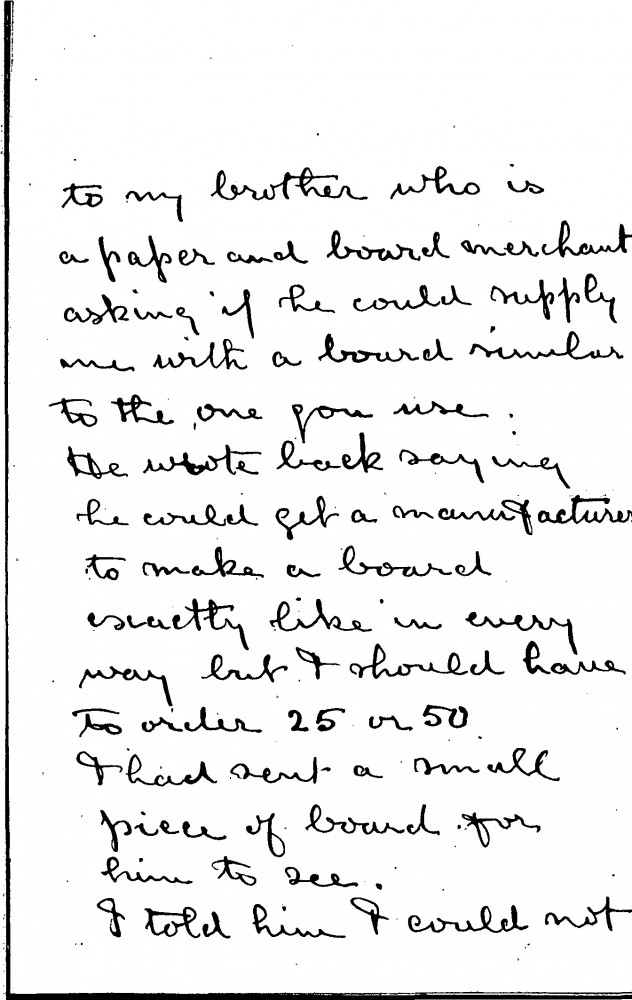 to my brother who is
a paper and board merchant
asking if he could supply
me with a board similar
to the one you use.
He wrote back saying
he could get a manufacturer
to make a board
exactly like in every
way but I should have
to order 25 or 50
I had sent a small
piece of board for
him to see.
I told him I could not